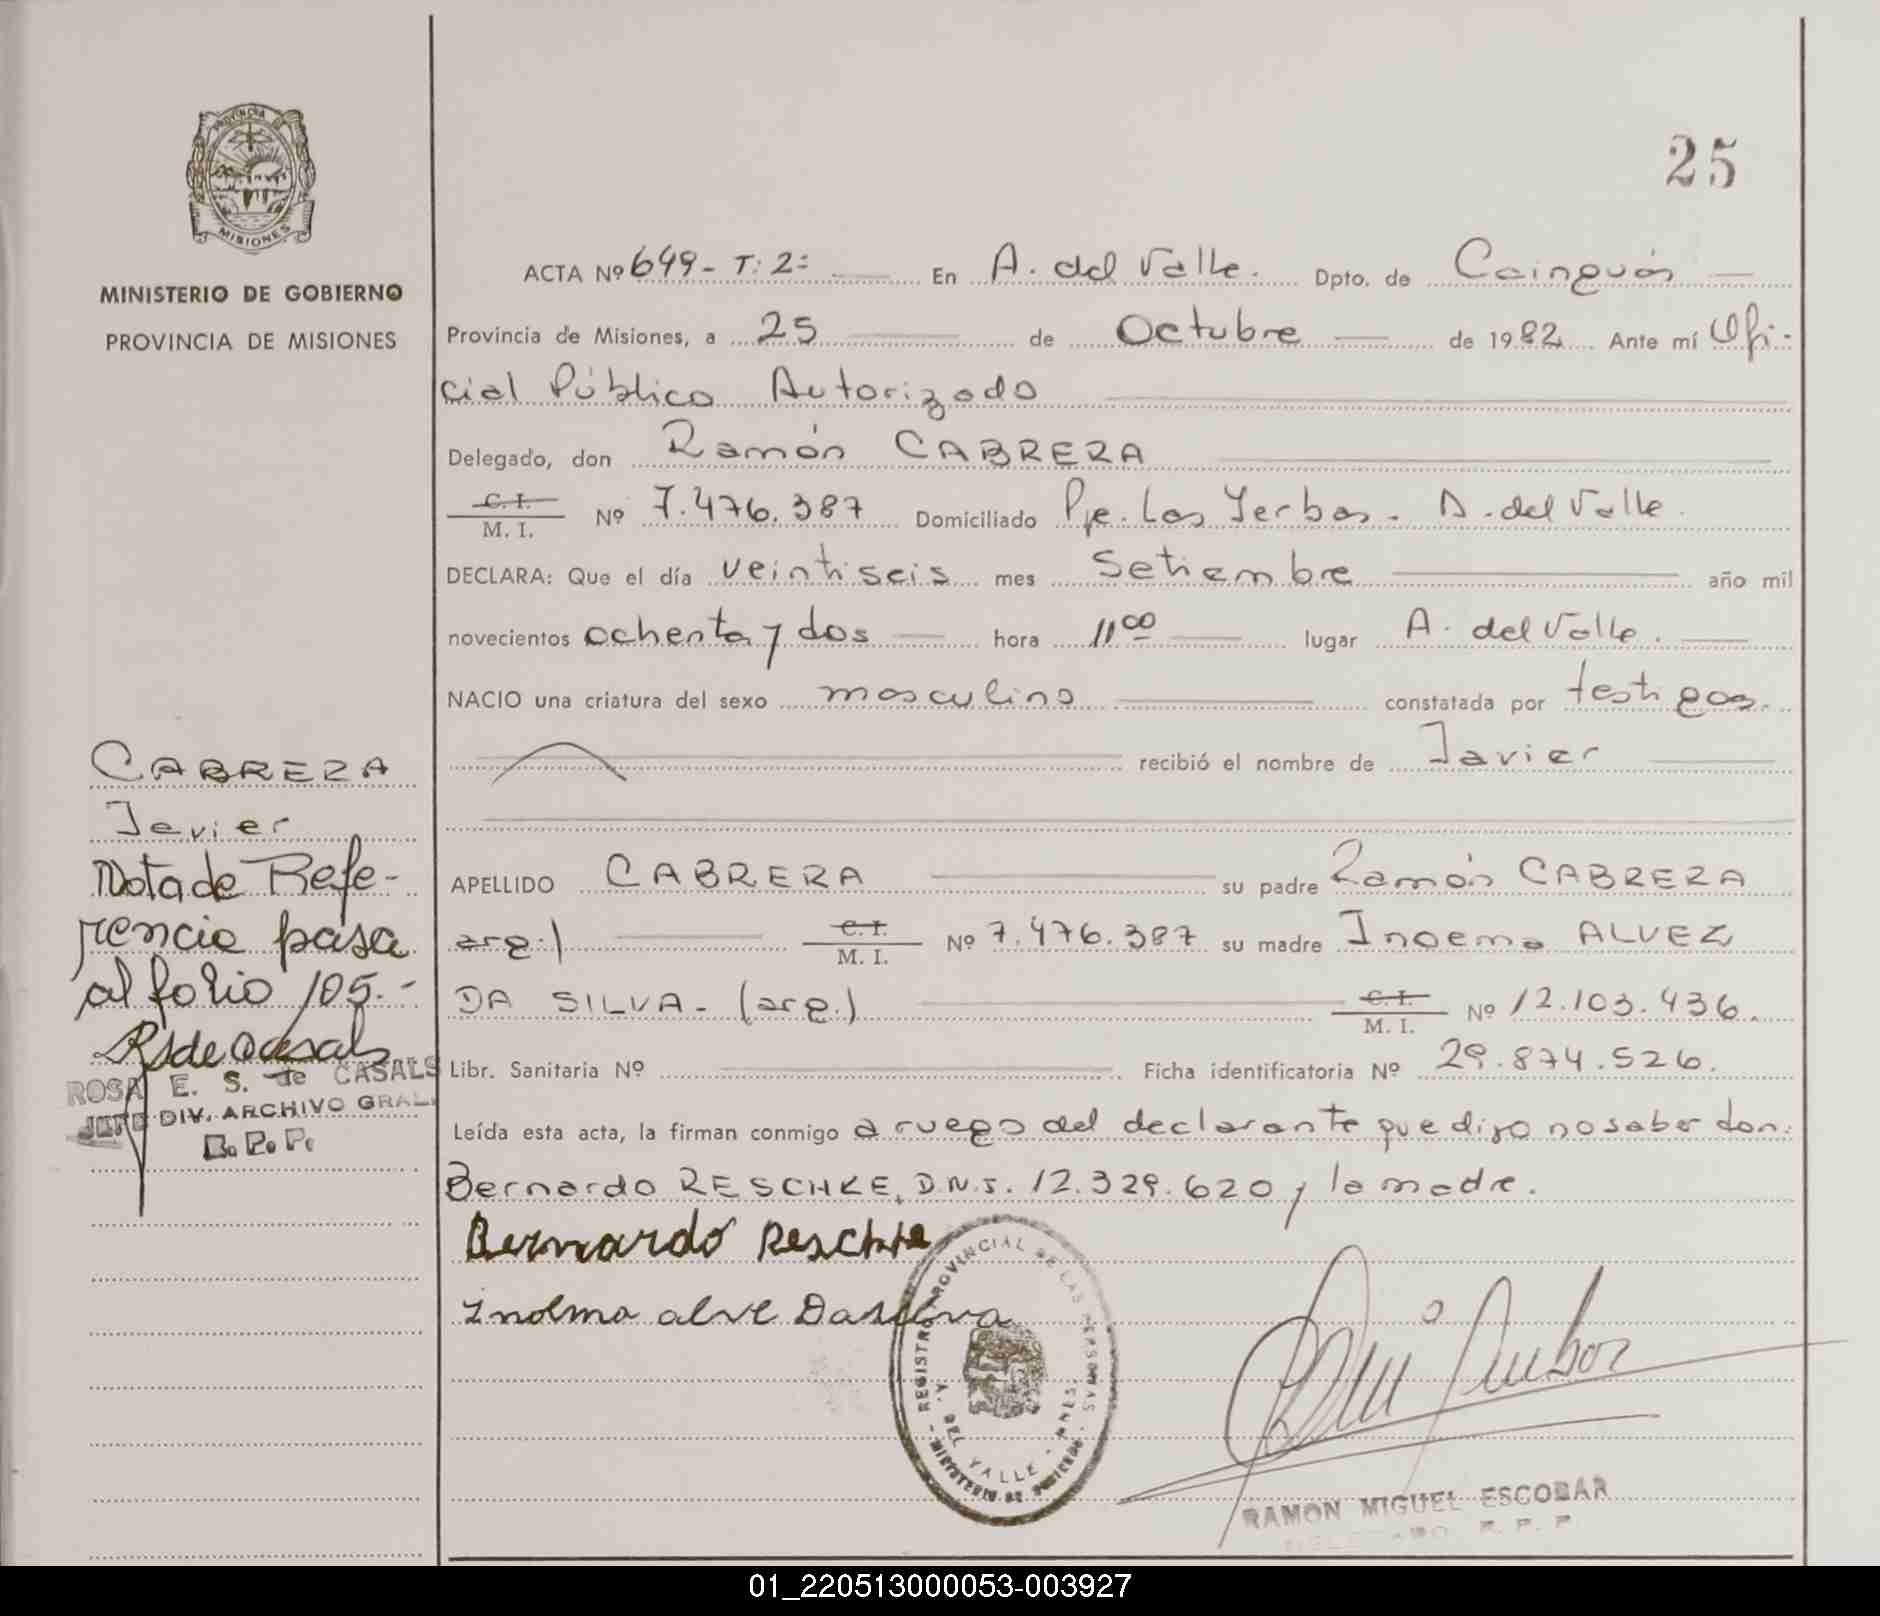 25
PROVINCIA DE
MISIONES
MINISTERIO DE GOBIERNO
PROVINCIA DE MISIONES
ACTA Nº 649 - T: 2: En A. del Valle. Dpto. de Cainguás
Provincia de Misiones, a 25 de Octubre de 1982 Ante mí Ofi-
cial Público Autorizado
Delegado, don Ramón CABRERA
C. I.
M. I. Nº 7.476.387 Domiciliado Pje. Las Yerbas - A. del Valle.
DECLARA: Que el día veintiseis mes Setiembre año mil
novecientos ochenta y dos hora 11 00 lugar A. del Valle.
NACIO una criatura del sexo masculino constatada por testigos.
recibió el nombre de Javier
APELLIDO CABRERA su padre Ramón CABRERA
arg.) C. I.
M. I. Nº 7.476.387 su madre Inoema ALVEZ
DA SILVA - (arg.) C. I.
M. I. Nº 12.103.436.
Libr. Sanitaria Nº Ficha identificatoria Nº 29.874.526.
Leída esta acta, la firman conmigo a ruego del declarante que dijo no saber don:
Bernardo RESCHKE, D.N.I. 12.329.620 y la madre.
Bernardo Reschke
Inolma alve Dasilva
CABRERA
Javier
Nota de Refe-
rencia pasa
al folio 105.-
RSdeCasals
ROSA E. S. de CASALS
JEFE DIV. ARCHIVO GRAL.
R. P. P.
REGISTRO PROVINCIAL DE LAS PERSONAS
A. DEL VALLE - MNES.
MINISTERIO DE GOBIERNO
RAMON MIGUEL ESCOBAR
R. P. P.
01_220513000053-003927